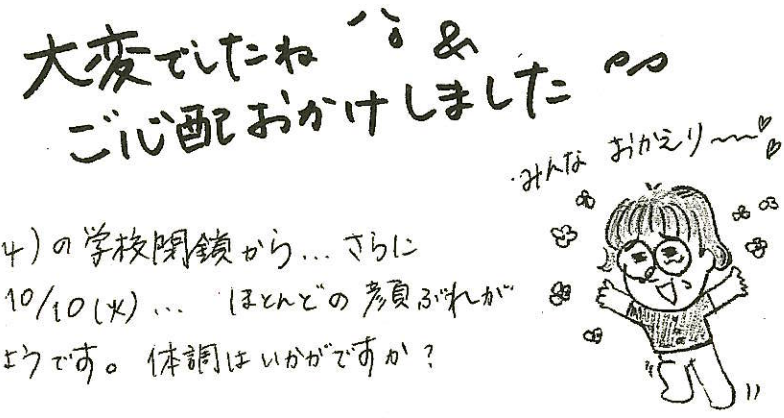 大変でしたね &
ご心配おかけしました
みんな おかえり〜〜♡♡
4)の学校閉鎖から... さらに
10/10(火)... ほとんどの顔ぶれが
ようです。体調はいかがですか?